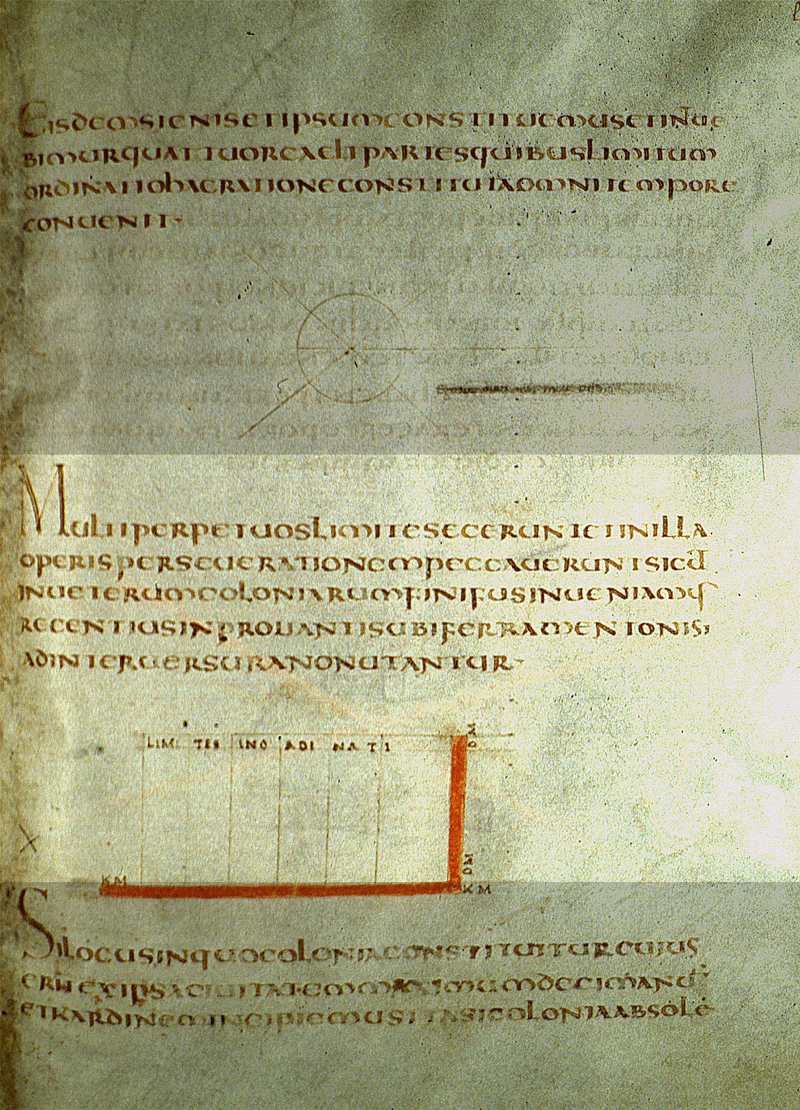 EISDEMSIGNISETIPSUMCONSTITUEMUSETINUE
BIMURQUATTUORCAELIPARTESQUIBUSLIMITUM
ORDINATIOHACRATIONECONSTITUTAOMNITEMPORE
CONUENIT
MULTIPERPETUOSLIMITESEGERUNTETINILLA
OPERISPERSEUERATIONEMPECCAUERUNTSICUT
INUETERUMCOLONIARUMFINIBUSINUENIAMUS
RECENTIUSINPROUANTISUBIFERRAMENTONIS
ADINTERUERSURANONUTANTUR
LIM TES INO ADI NA T I
DM
DM
KM
KM
SILOCUSINQUOCOLONIACONSTITUITURCUIUS
ERIT EXIPSACIUITATE MAXIMUMDECIMANU
ETKARDINEMINCIPIEMUSITASICOLONIAABSOLE